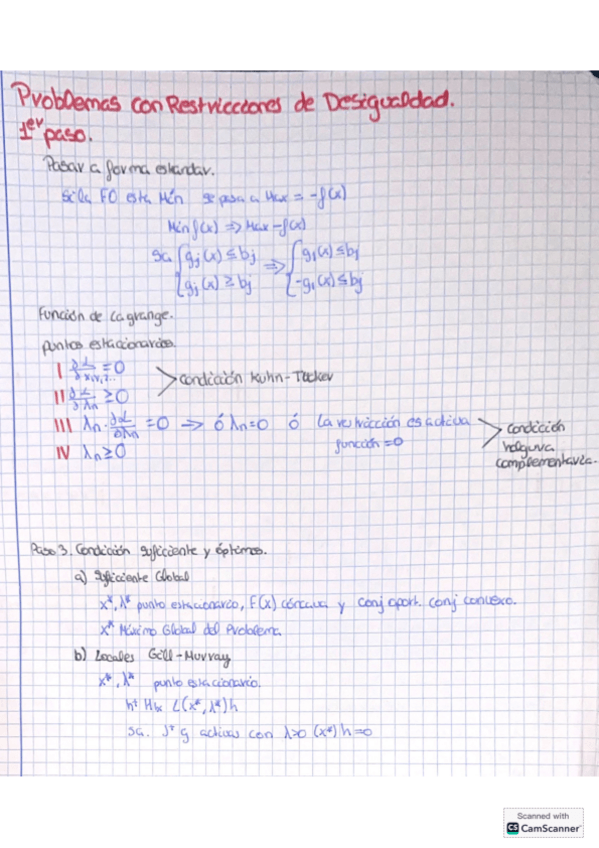 Problemas con Restricciones de Desigualdad.
1er paso.
Pasar a forma estandar.
Si la FO esta Mín se pasa a Max = -f(x)
Min f(x) => Max -f(x)
Sa { gj(x) ≤ bj => { g1(x) ≤ bj
{ gj(x) ≥ bj { -g1(x) ≤ bj
Función de Lagrange.
puntos estacionarios
I ∂L/∂x,y,z.. = 0
> Condición Kuhn-Tucker
II ∂L/∂λn ≥ 0
III λn · ∂L/∂λn = 0 → ó λn=0 ó la restricción es activa
función = 0
> Condición holgura complementaria.
IV λn ≥ 0
Paso 3. Condición suficiente y óptimos.
a) Suficiente Global
x*, λ* punto estacionario, F(x) cóncava y conj oport. conj convexo.
x* Máximo Global del Problema.
b) Locales Gill-Murray
x*, λ* punto estacionario.
ht Hx L(x*, λ*) h
sa. Jt g activas con λ>0 (x*) h = 0
Scanned with
CS CamScanner